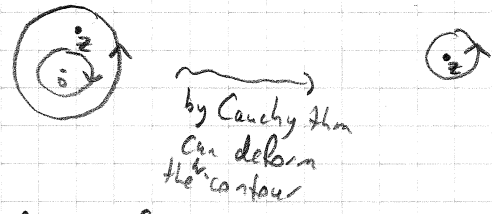 z
o
z
by Cauchy thm
can deform
the contour